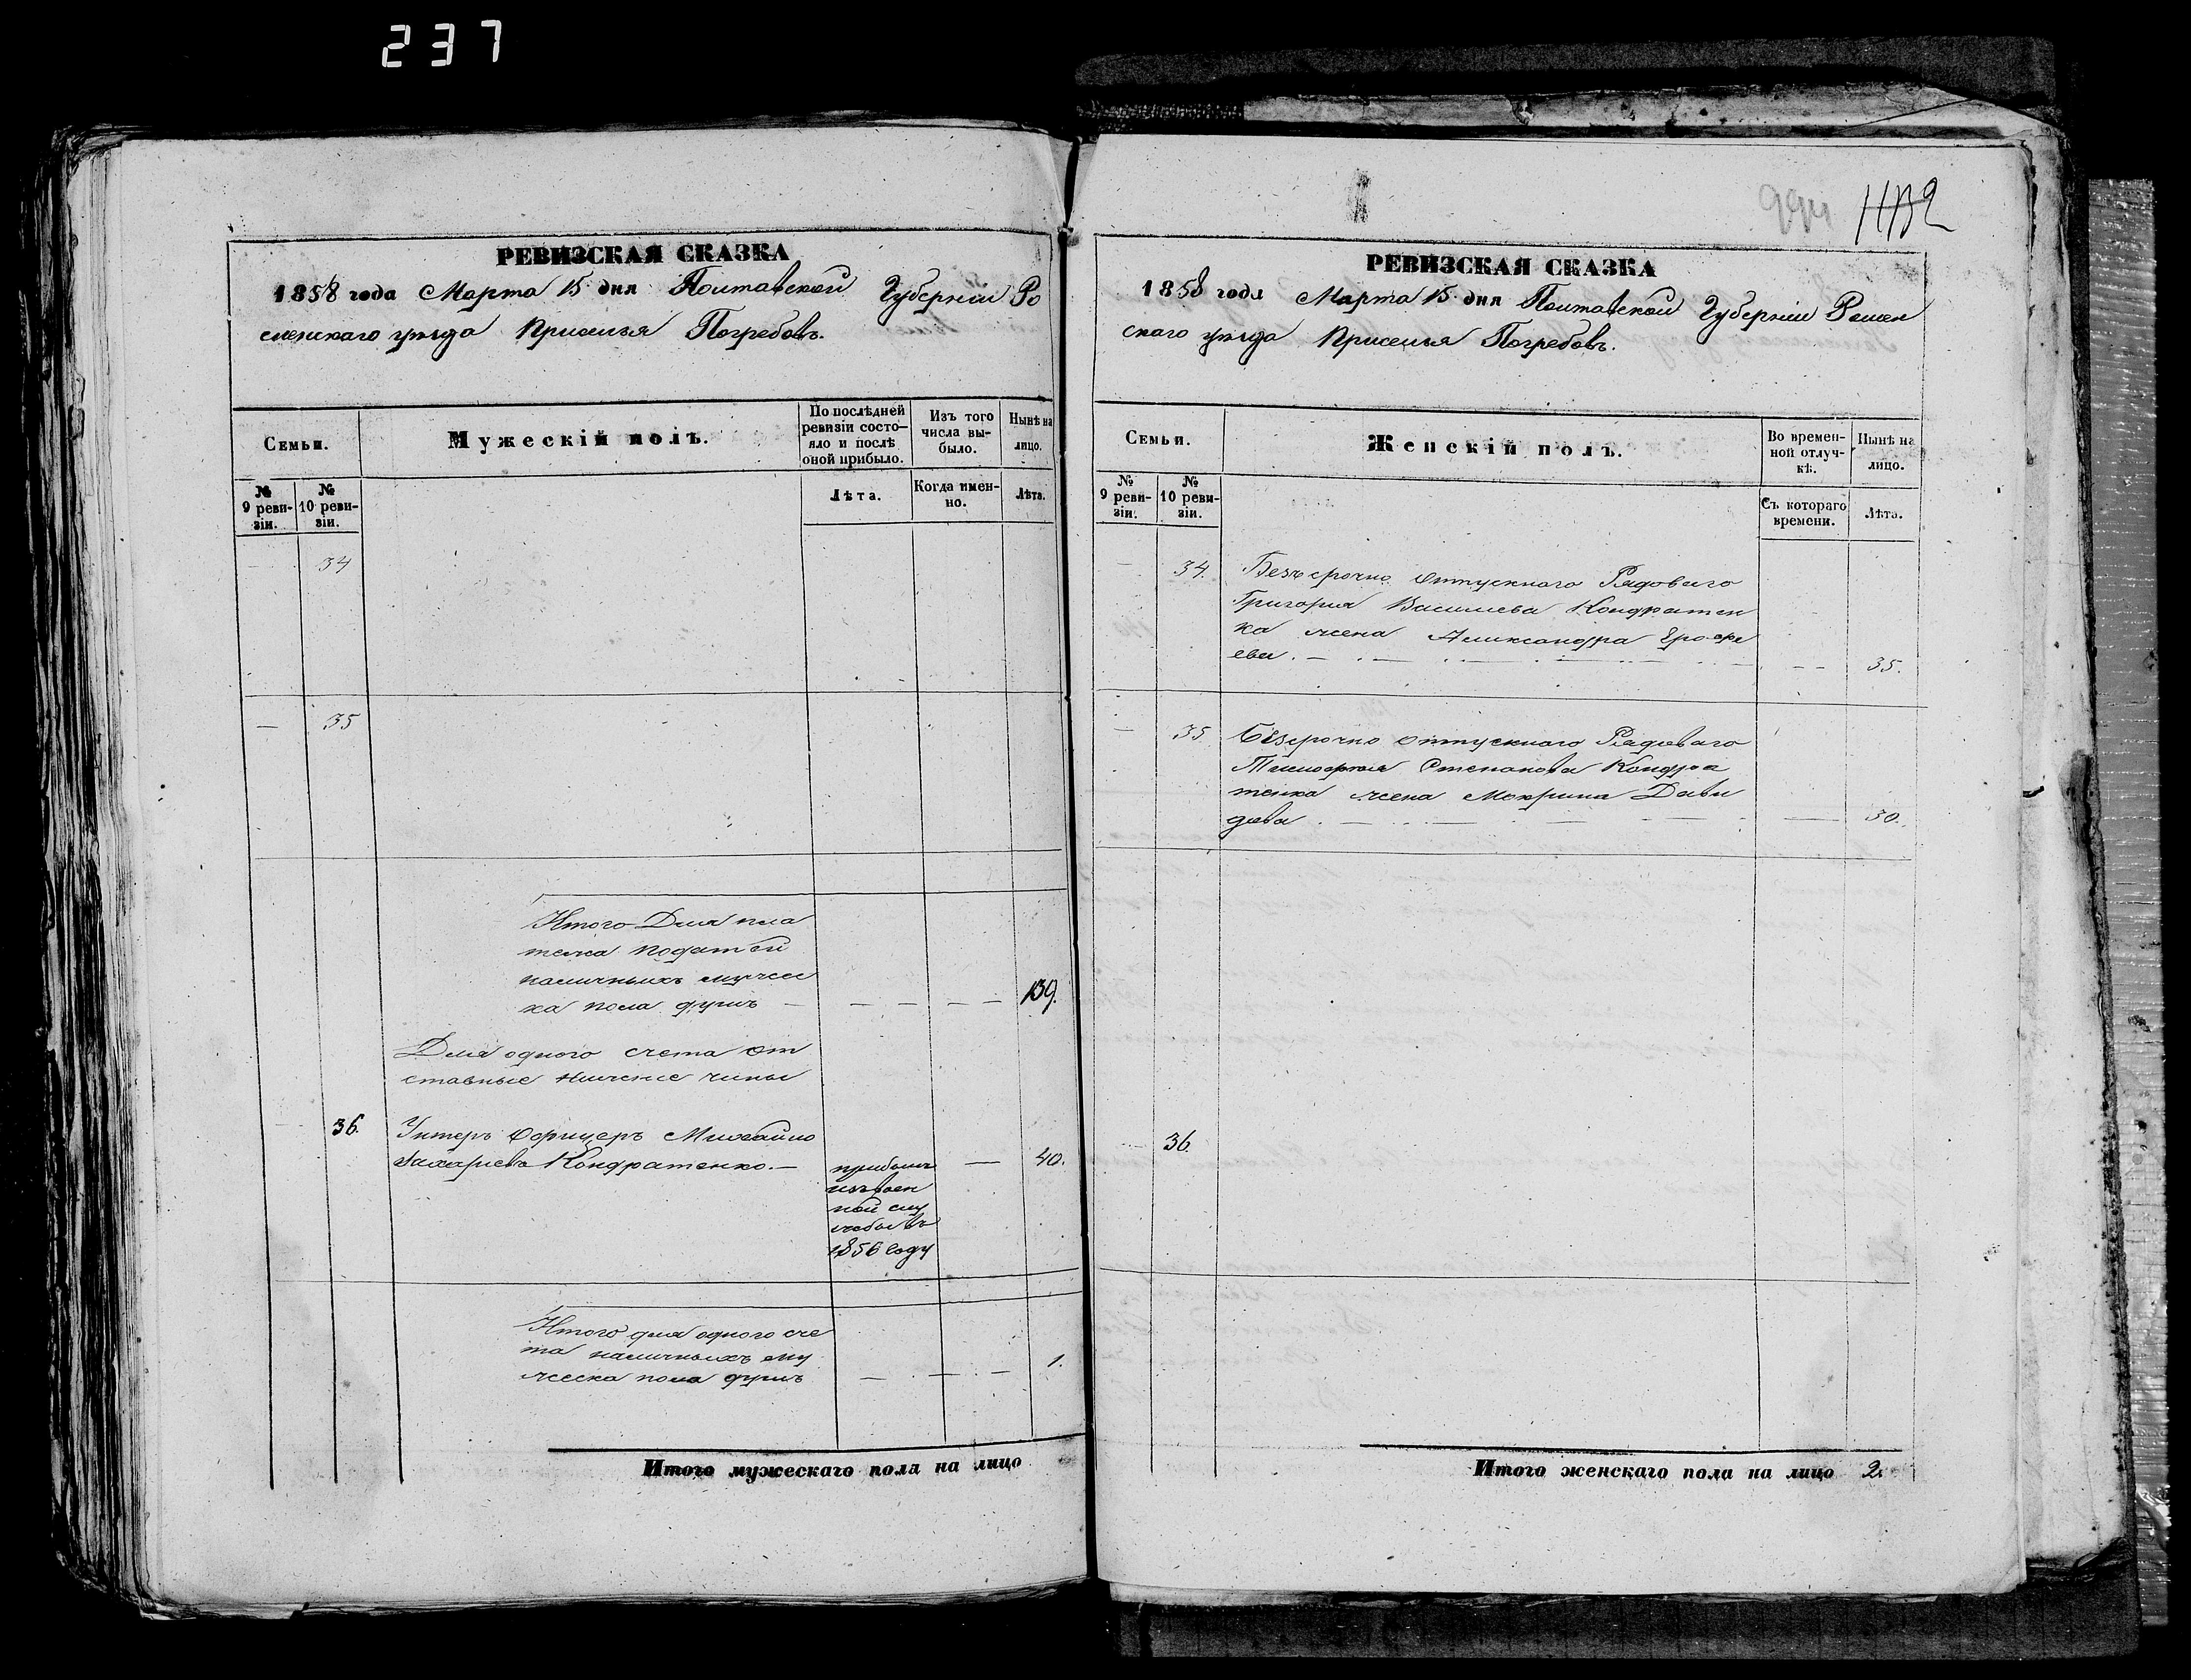 237
994
1132
РЕВИЗСКАЯ СКАЗКА
1858 года Марта 15 дня Полтавской Губерніи Ро
менскаго уѣзда Приселья Погребовъ.
Семьи.
Мужескій полъ.
По послѣдней
ревизіи состо-
яло и послѣ
оной прибыло.
Изъ того
числа вы-
было.
Нынѣ на
лицо.
№
9 реви-
зіи.
№
10 реви-
зіи.
Лѣта.
Когда имен-
но.
Лѣта.
— 34
— 35
Итого Для пла
тежа податей
наличныхъ мужес
ка пола душъ — — — — — — 139.
Для одного счета от
ставные нижние чины
36. Унтеръ Офицеръ Михайло
Захарьевъ Кондратенко. — прибылъ — 40.
изъ воен
ной слу
жбы въ
1856 году
Итого для одного сче
та наличныхъ му
жеска пола душъ — — — 1.
Итого мужескаго пола на лицо
РЕВИЗСКАЯ СКАЗКА
1858 года Марта 15 дня Полтавской Губерніи Ромен
скаго уѣзда Приселья Погребовъ.
Семьи.
Женскій полъ.
Во времен-
ной отлуч-
кѣ.
Нынѣ на
лицо.
№
9 реви-
зіи.
№
10 реви-
зіи.
Съ котораго
времени.
Лѣта.
— 34. Безъсрочно отпускнаго Рядоваго
Григорія Васильева Кондратен
ка жена Александра Ерофе
ева. — — — — — — — 35.
— 35 Безсрочно отпускнаго Рядоваго
Тимофея Степанова Кондра
тенка жена Мокрина Дави
дова. — — — — — — 30.
36.
Итого женскаго пола на лицо 2.